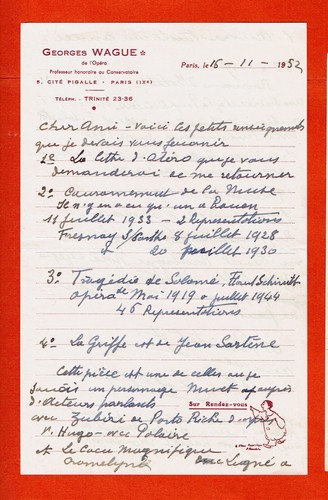 GEORGES WAGUE
de l'Opéra
Professeur honoraire au Conservatoire
8, CITÉ PIGALLE - PARIS (IXe)
TÉLÉPH. - TRINITÉ 23-36
Paris, le 16 - 11 - 1952
Cher Ami - voici les petits renseignements
que je devais vous fournir
1° La lettre d'Otéro que je vous
demanderai de me retourner
2° Couronnement de la Muse
Il n'y en a eu qu'un à Rouen
11 juillet 1933 - 2 Représentations
Fresnay s/ Sarthe 8 juillet 1928
20 juillet 1930
3° Tragédie de Salomé, Florent Schmitt
Opéra de Mai 1919 à juillet 1944
46 Représentations
4° La Griffe est de Jean Sartène
Cette pièce est une de celles où je
jouais un personnage Muet auprès
d'acteurs parlants
Sur Rendez-vous
avec Zubiri de Porto Riche
V. Hugo - avec Polaire
et Le Cocu Magnifique
Crommelynck avec Lugné